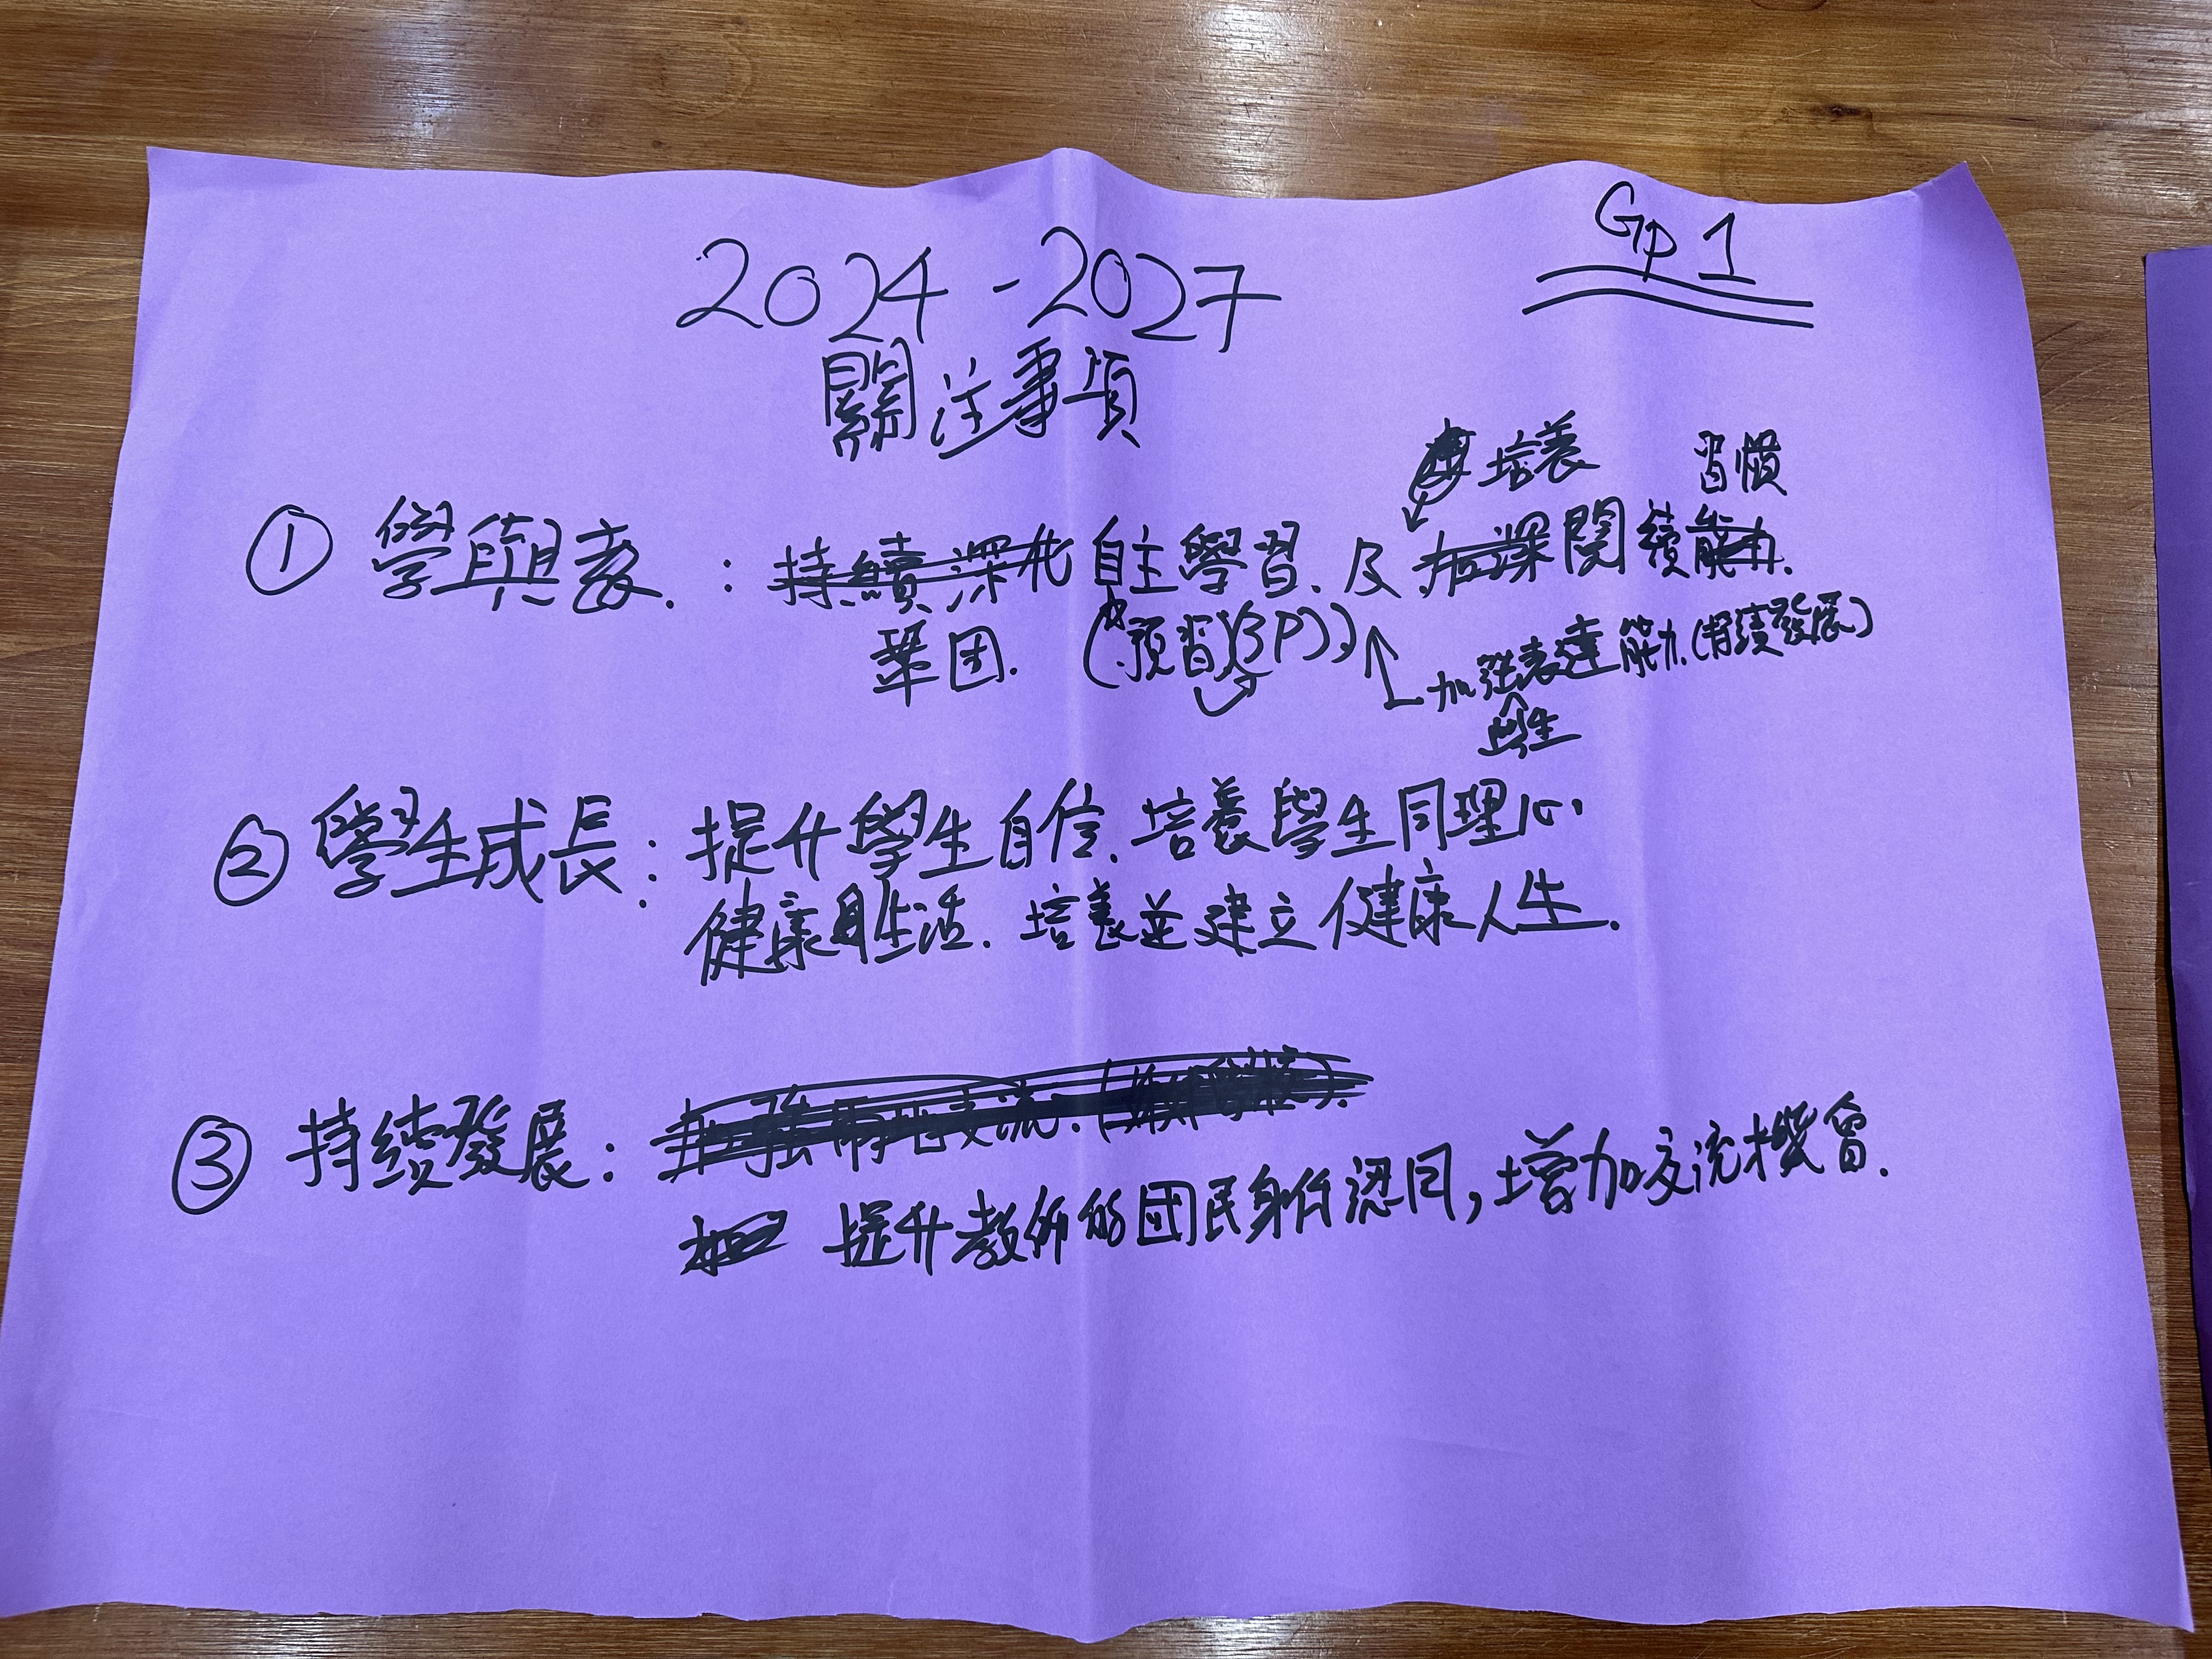 Gp 1
2024-2027
關注事項
培養 習慣
① 學與教: 持續深化 自主學習、及 加深閱讀能力.
鞏固. (預習(BP))
加強表達能力(持續發展)
學生
② 學生成長: 提升學生自信、培養學生同理心
健康生活. 培養並建立健康人生.
③ 持續發展: 加強兩地交流.
提升教師的國民身份認同,增加交流機會.